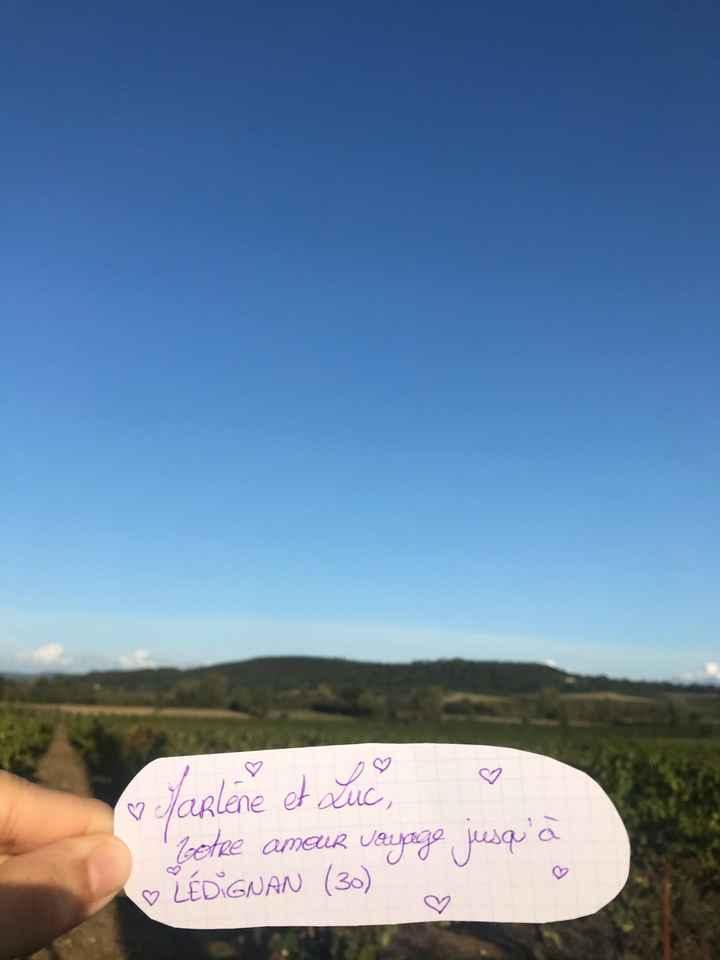 Marlène et Luc,
Votre amour voyage jusqu'à
LÉDIGNAN (30)